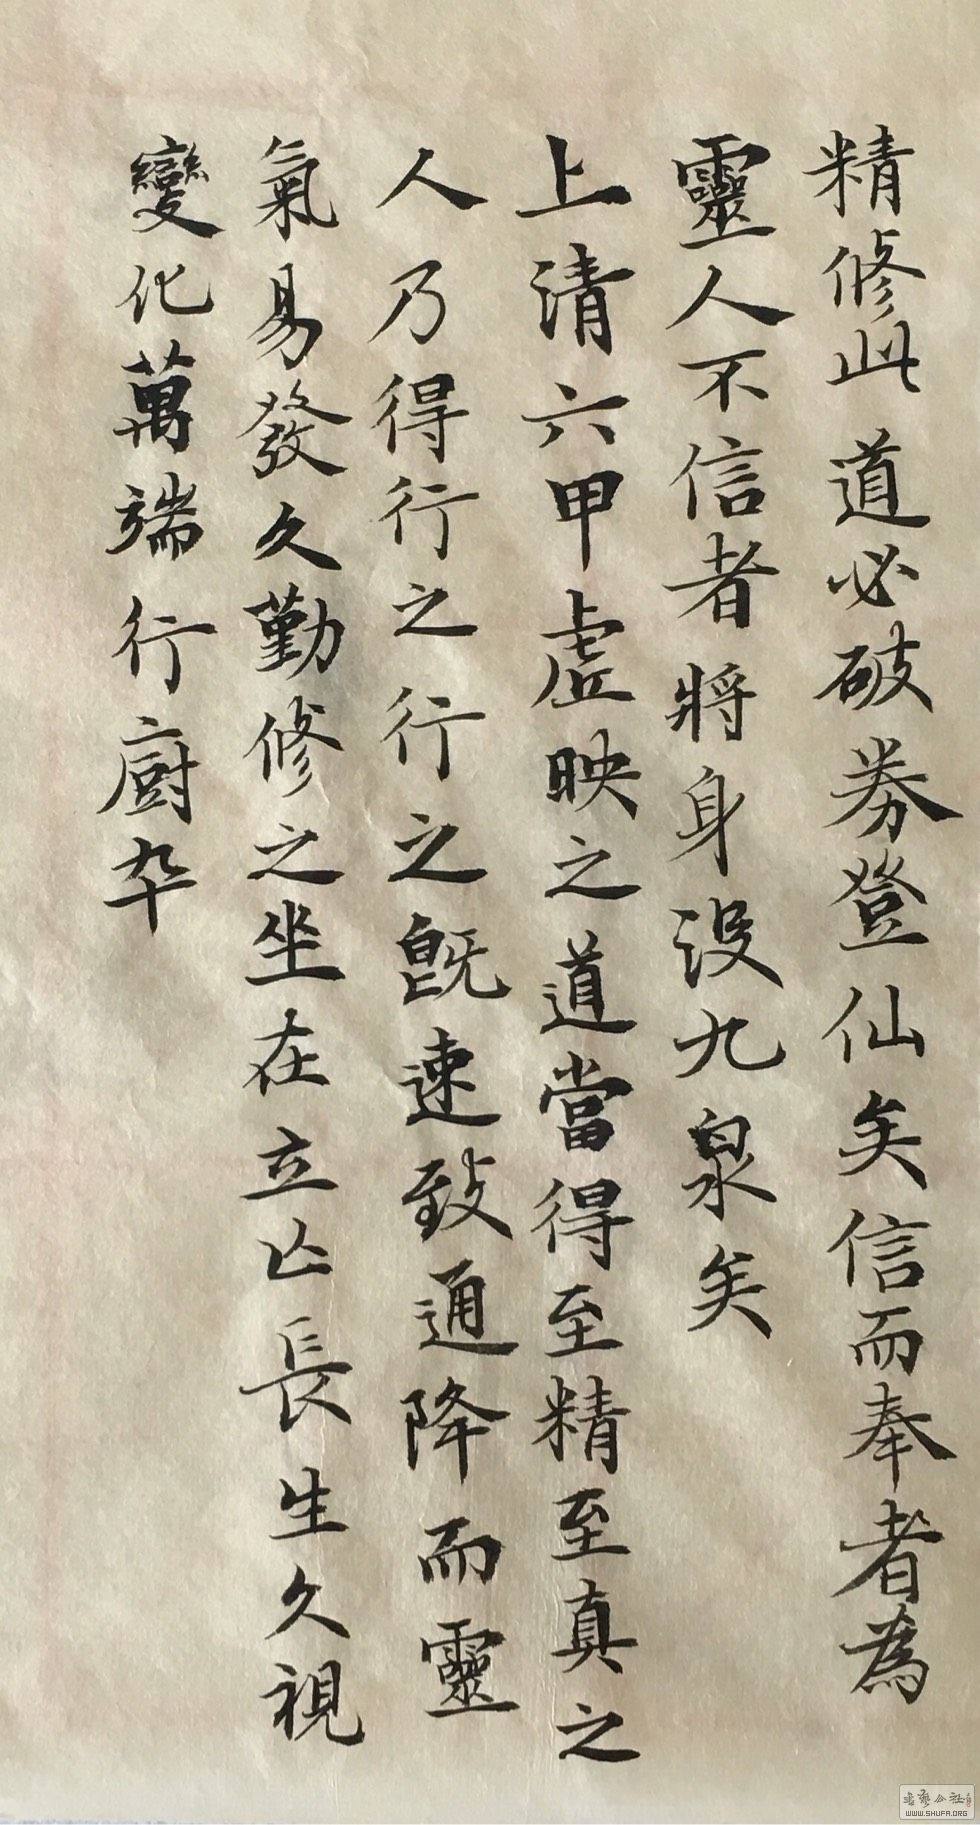 精修此道必破券登仙矣信而奉者為
靈人不信者將身没九泉矣
上清六甲虛映之道當得至精至真之
人乃得行之行之既速致通降而靈
氣易發久勤修之坐在立亾長生久視
變化萬端行廚卒
WWW.SHUFA.ORG